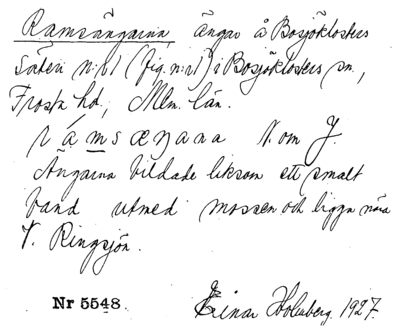 Ramsängarna, ängar å Bosjöklosters
Säteri n:r 1 (fig. n:r 1) i Bosjöklosters sn.,
Frosta hd., Mlm. län.
rámsæŋana N. om J.
Ängarna bildade liksom ett smalt
band utmed mossen och ligga nära
V. Ringsjön.
Nr 5548 Einar Holmberg. 1927.